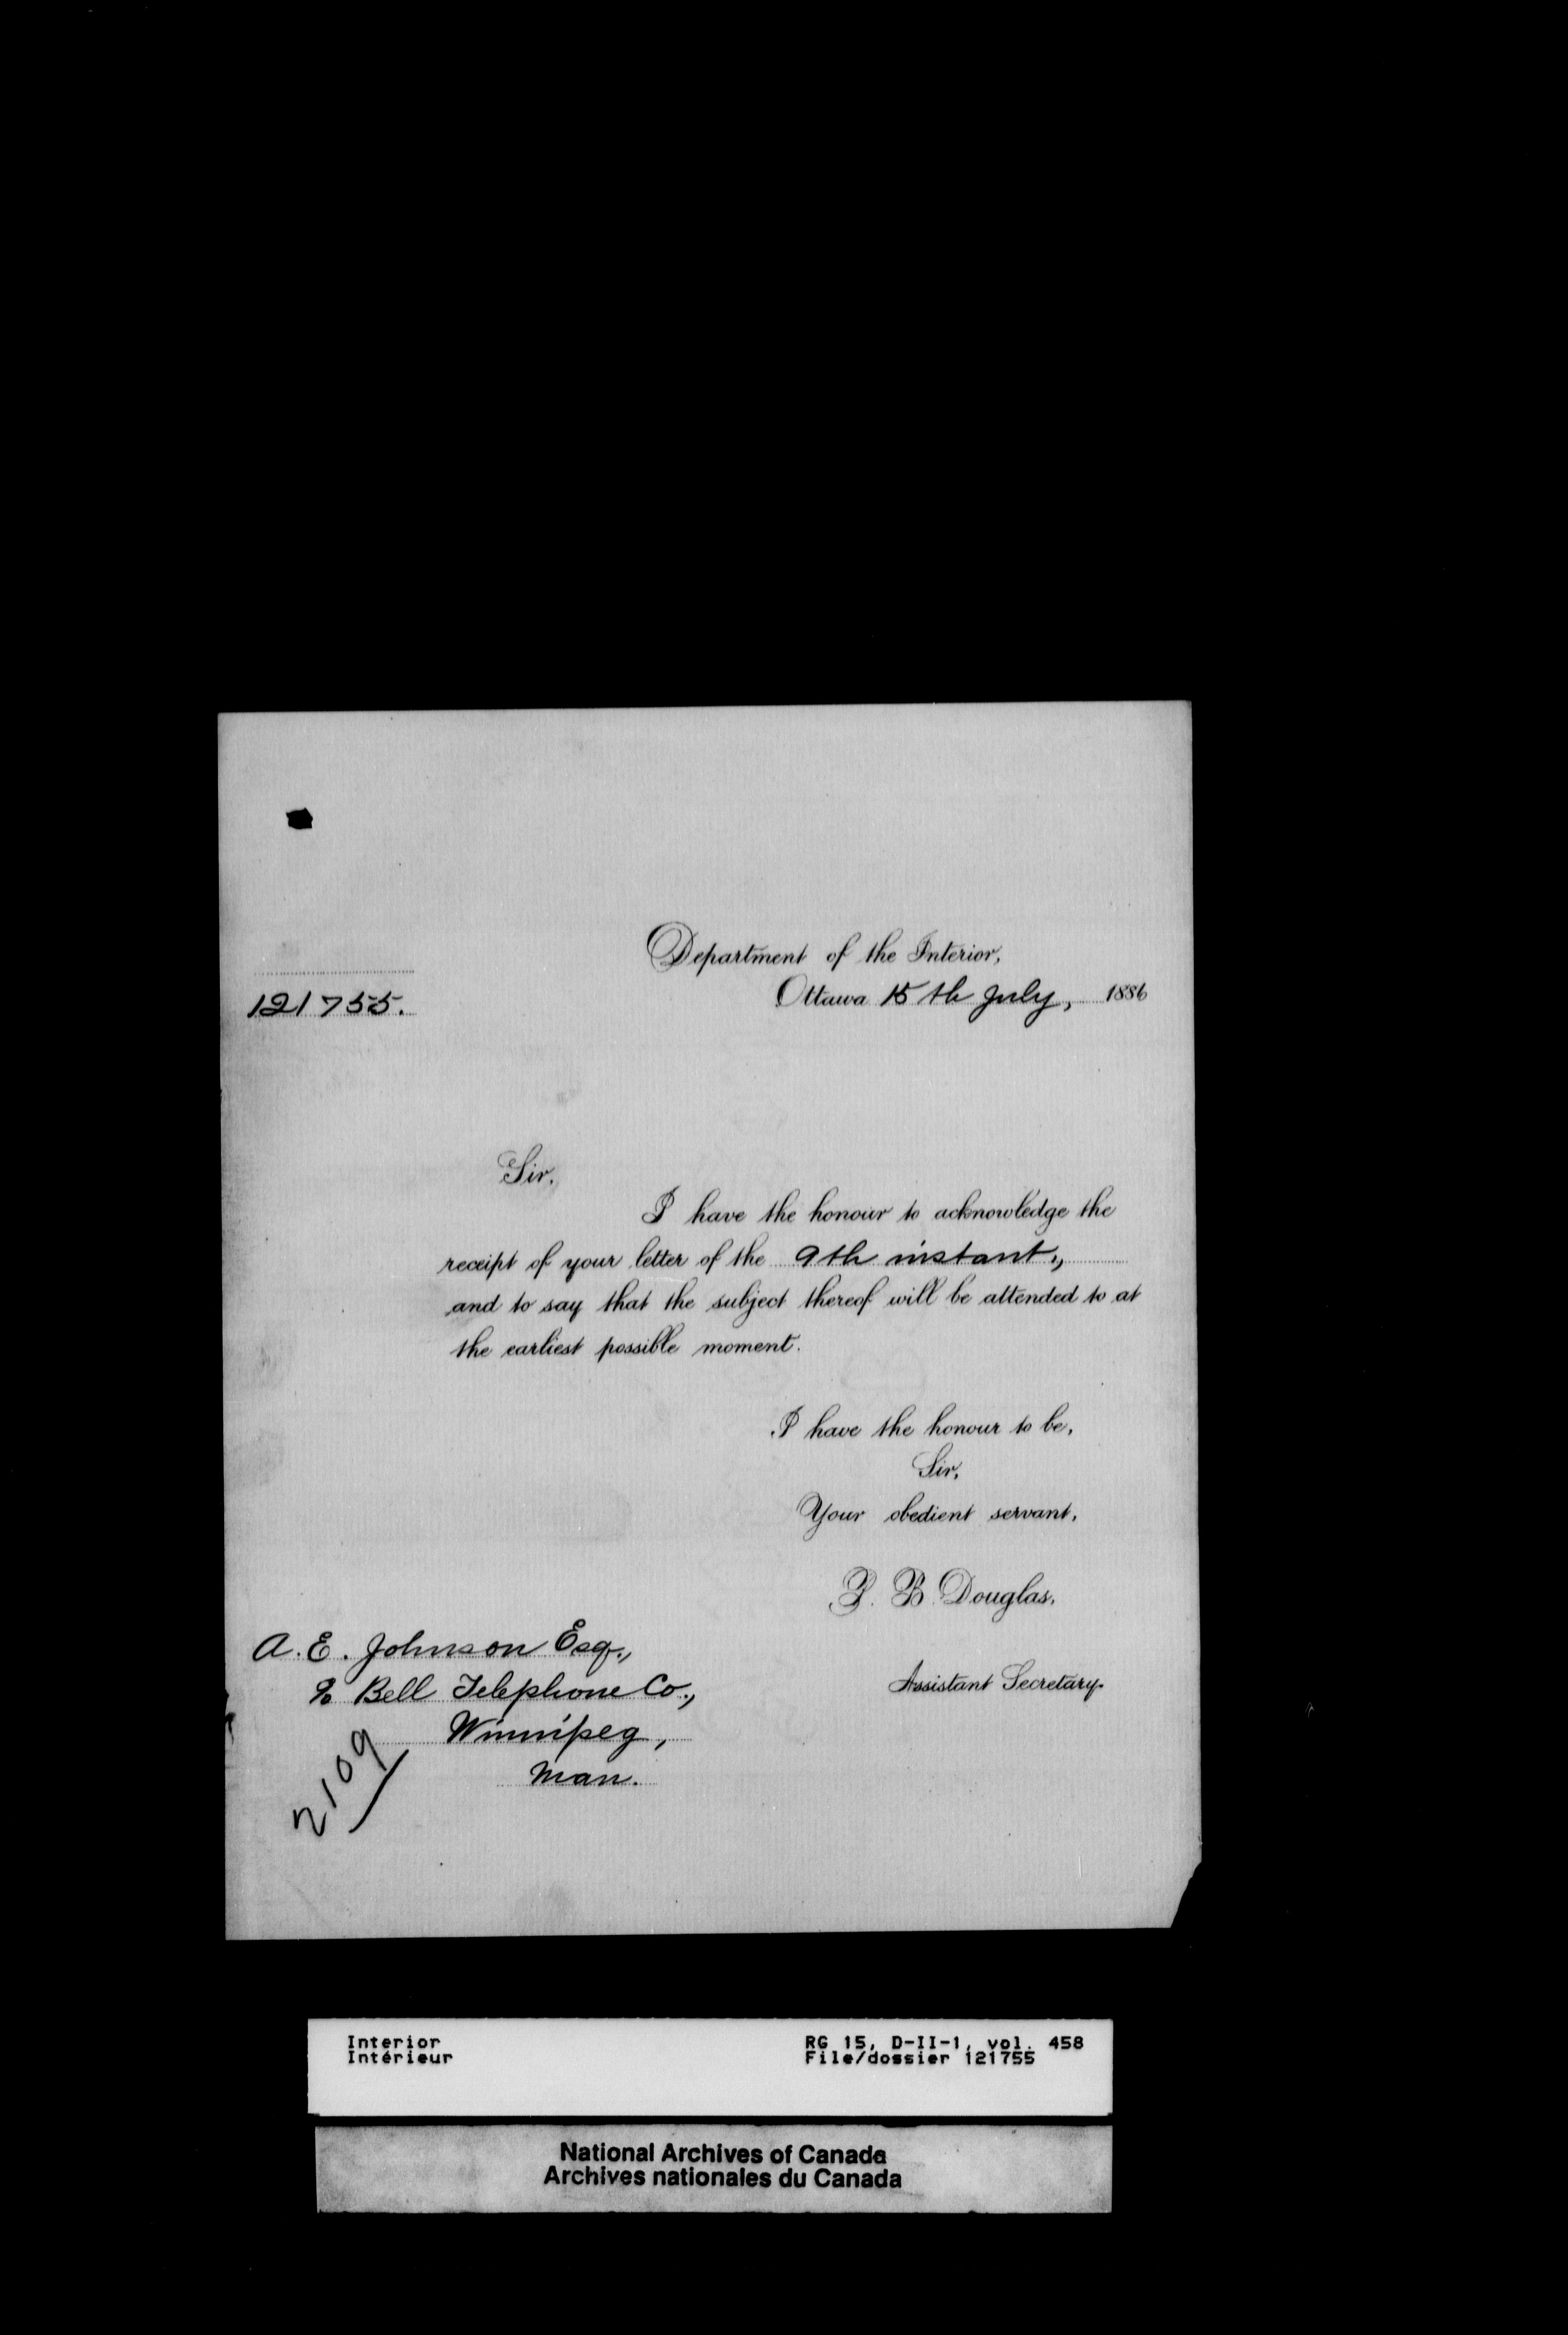 Department of the Interior,
Ottawa 15th July, 1886
121755.
Sir,
I have the honour to acknowledge the
receipt of your letter of the 9th instant.,
and to say that the subject thereof will be attended to at
the earliest possible moment.
I have the honour to be,
Sir,
Your obedient servant,
P. B. Douglas,
Assistant Secretary.
A. E. Johnson Esq.,
% Bell Telephone Co.,
Winnipeg,
Man.
2109
Interior
Intérieur
RG 15, D-II-1, vol. 458
File/dossier 121755
National Archives of Canada
Archives nationales du Canada